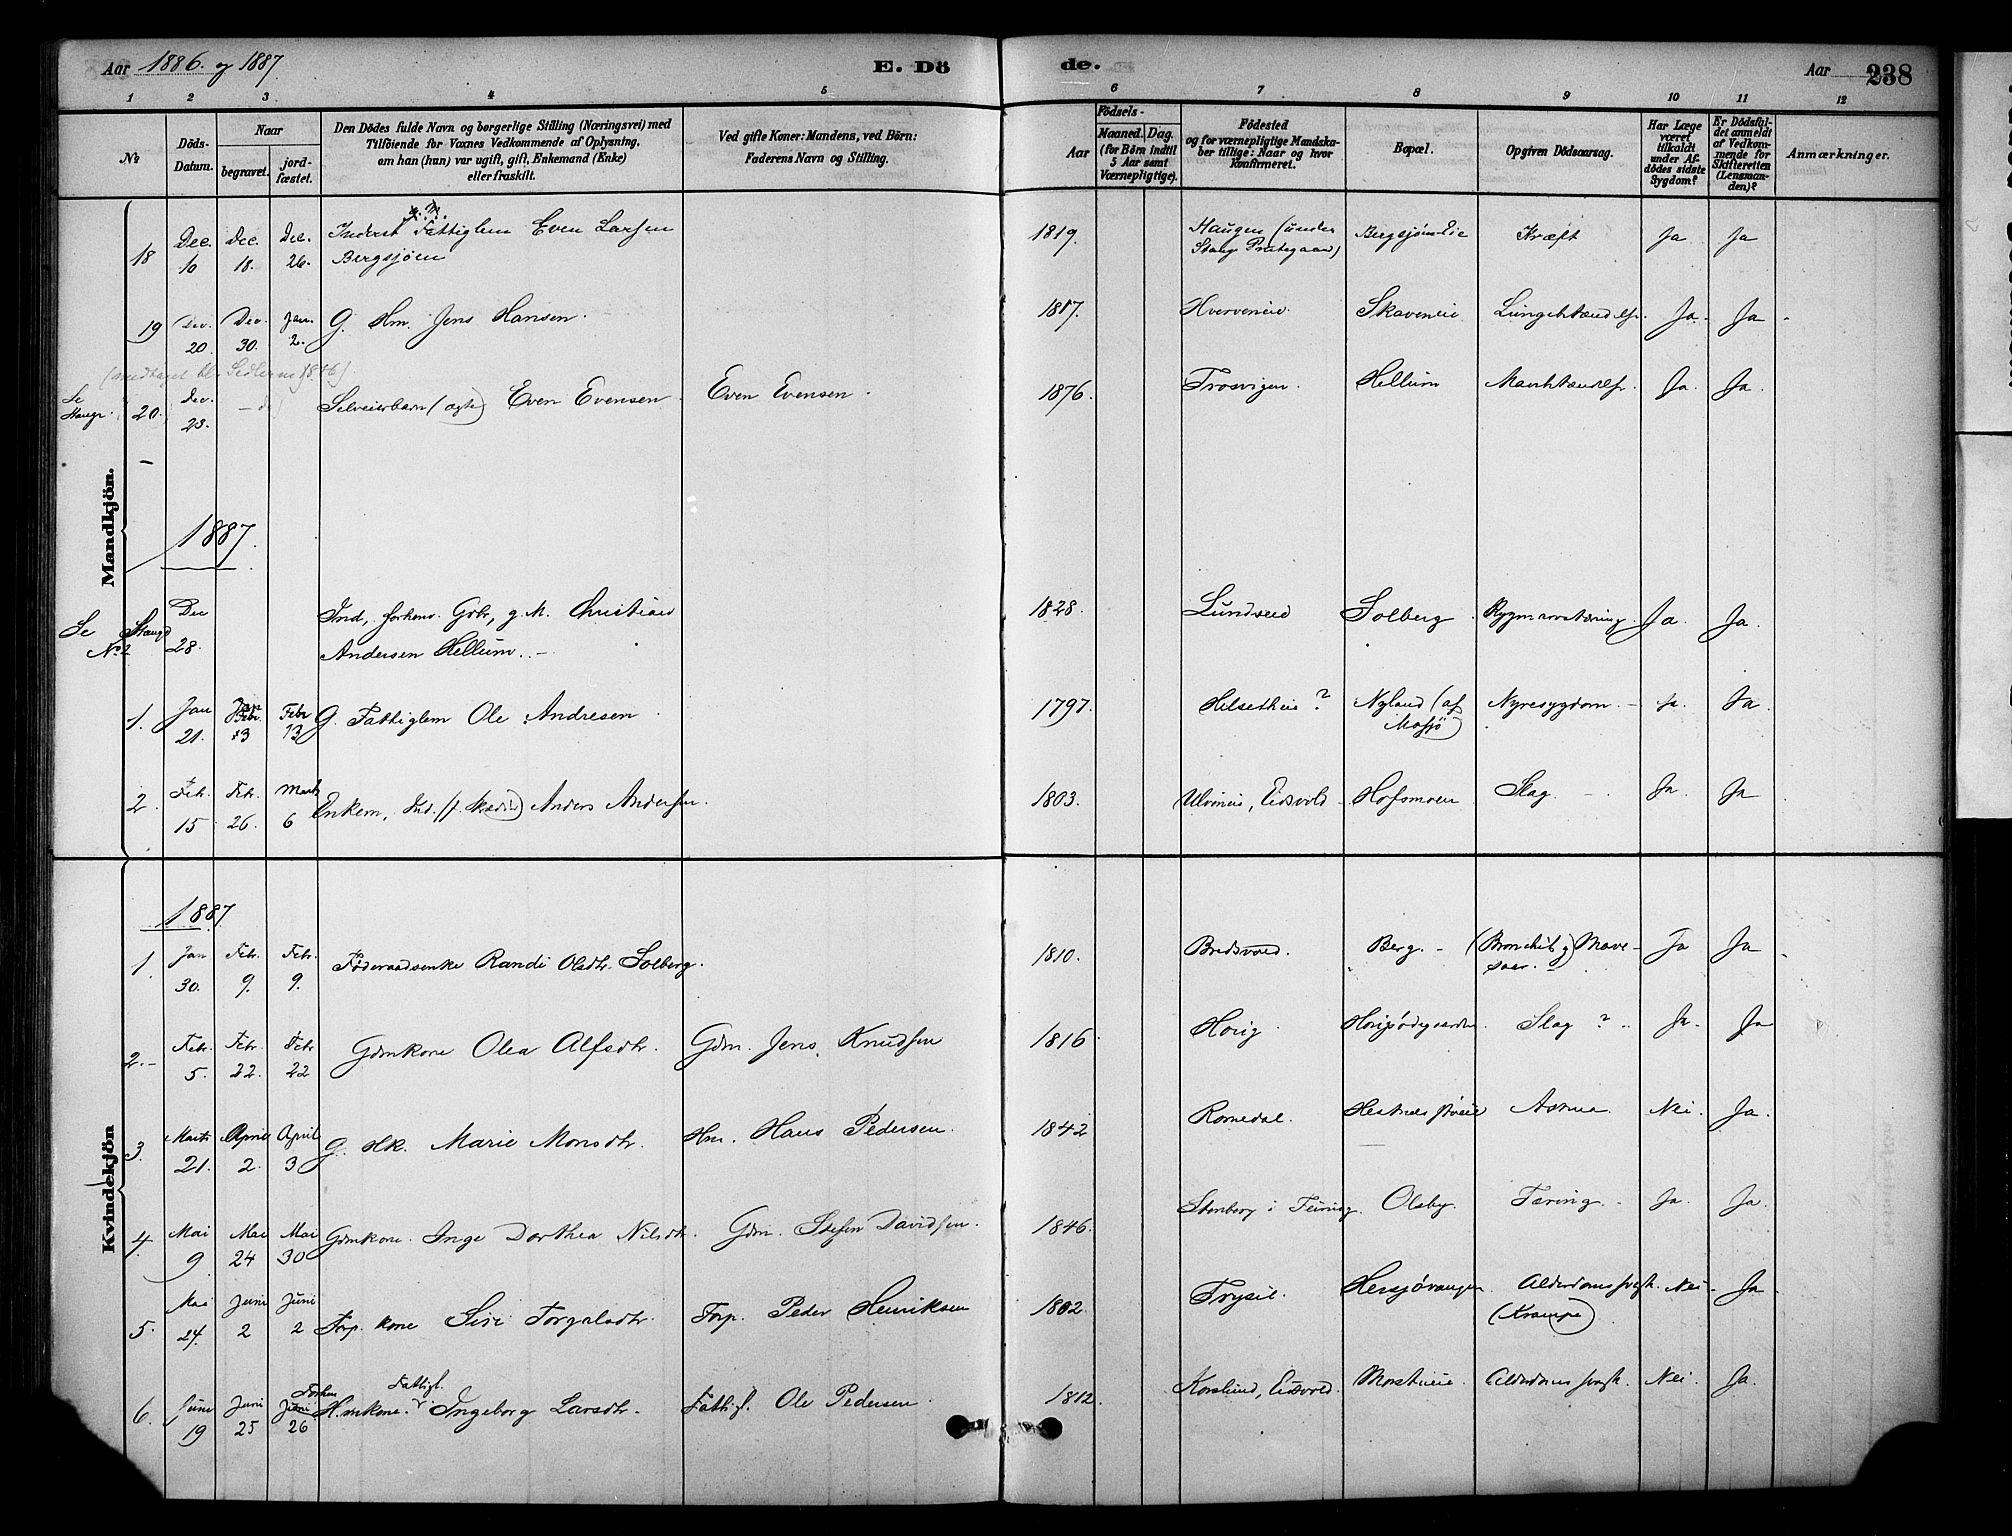 Aar 1886. og 1887
E. Dö
de.
Aar
238
1 2 3 4 5 6 7 8 9 10 11 12
No
Döds-
Datum.
Naar
begravet.
jord-
fæstet.
Den Dödes fulde Navn og borgerlige Stilling (Næringsvei) med
Tilföiende for Voxnes Vedkommende af Oplysning,
om han (hun) var ugift, gift, Enkemand (Enke)
eller fraskilt.
Ved gifte Koner: Mandens, ved Börn:
Faderens Navn og Stilling.
Födsels-
Aar
Maaned. Dag.
(for Börn indtil
5 Aar samt
Værnepligtige).
Födested
og for værnepligtige Mandska-
ber tillige: Naar og hvor
konfirmeret.
Bopæl.
Opgiven Dödsaarsag.
Har Læge
været
tilkaldt
under Af-
dödes sidste
Sygdom?
Er Dödsfal-
det anmeldt
af Vedkom-
mende for
Skifteretten
(Lensman-
den)?
Anmærkninger.
Mandkjön.
18 Dec. 10 Dec. 18. Dec. 26. Inderst g. M. Fattiglem Even Larsen
Bergsjöen
1819. Haugen (under
Stange Præstegaard) Bergsjöen Eie Kræft Ja Ja
19 Dec. 20. Dec. 30. Jan. 2. G. Hm. Jens Hansen.
1817. Hverveneie Skaveneie Ja. Ja.
Se Stange. 20. Dec. 23. Selveierbarn (ægte) Even Evensen Even Evensen.
1876. Trosvigen. Hellum Ja. Ja.
1887.
Se Stange No. 2 Dec 28. Ind, forhenv. Gbr, g. M. Christian
Andersen Hellum. -
1828. Lundseie Solberg Rygmarvstæring. Ja. Ja.
1. Jan 21. Jan Febr 13 G. Fattiglem Ole Andresen
1797. Helsetheie? Nyland (af
Mosjö) Nyresygdom. - Ja. Ja.
2. Feb. 15 Febr. 26. Marts 6 Enkem, Ind. Anders Andersen.
1803. Ulvineie, Eidsvold Hofsmoen Slag - Ja. Ja
Kvindekjön
1887
1. Jan 30. Febr. 9. Febr. 9. Föderaadsenke Randi Olsdtr. Solberg.
1810. Bredsvoed. Berg. - (Bronchit og) Mave-
saar. Ja Ja
2. - Febr. 5. Febr. 22. Febr 22 Gdmkone Olea Alfsdtr. Gdm. Jens Knudsen
1816 Horig. Slag? Ja. Ja
3. Marts 21. April 2. April 3 G. Hk. Marie Monsdtr. Hm. Hans Pedersen.
1842 Romedal. Astma Nei. Ja.
4 Mai 9 Mai 24 Mai 30 Gdmkone. Inge Dorthea Nilsdtr. Gdm. Stefen Davidsen.
1846. Stenberg i Feiring. Olsby. Tæring - Ja. Ja.
5. Mai 24. Juni 2 Juni 2 Torp. kone Siri Torgalsdtr. Torp. Peder Henriksen
1802. Trysil. Hersjövangen Alderdomssvagh.
(Krampe) Nei - Ja
6. Juni 19 Juni 25 Juni 26 Forhen. Hmkone. Fattigl. Ingeborg Larsdtr. Fattigl. Ole Pedersen
1812. Korslund, Eidsvold. Morstueie Alderdomssvagh. Nei. Ja.